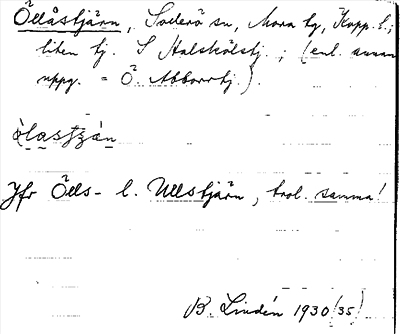 Öllåstjärn, Sollerö sn, Mora tg, Kopp. l.;
liten tj. S Halskölstj.; (enl. annan
uppg. = Ö. Abborrtj.).
Jfr Ölls- l. Ullstjärn, trol. samma!
B. Lindén 1930(35)